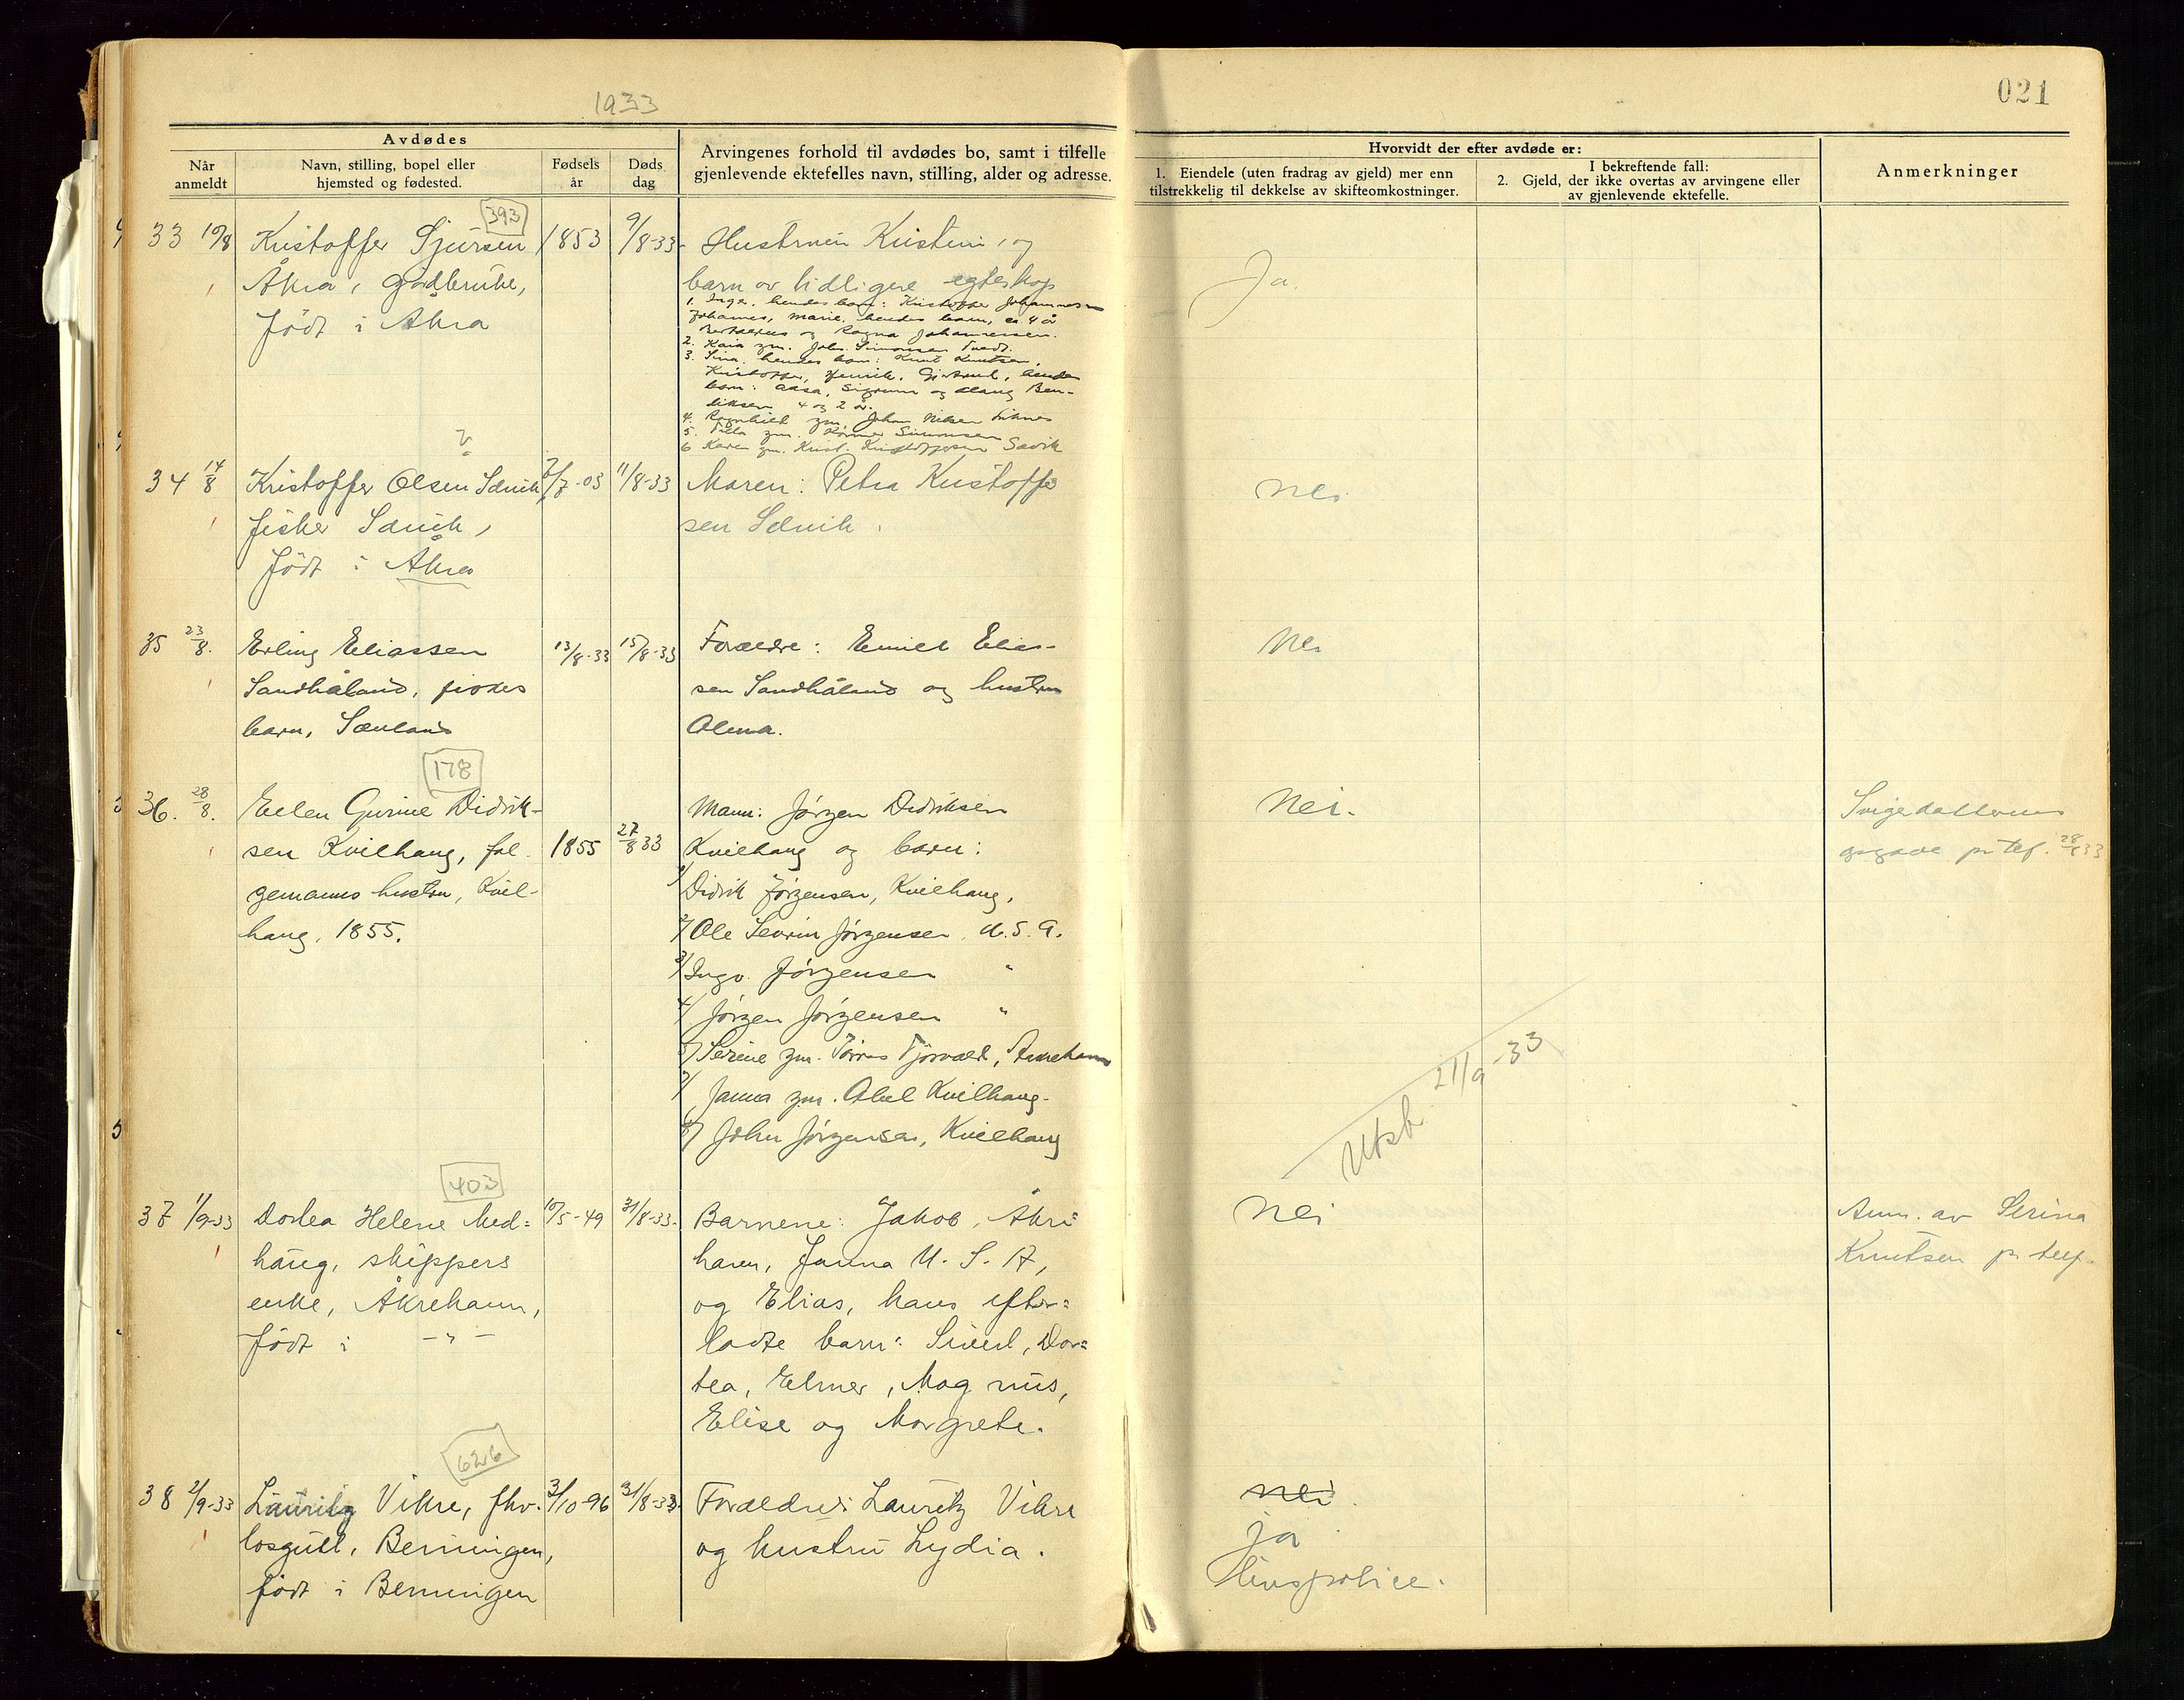 021
1933
Avdødes
Når anmeldt
Navn, stilling, bopel eller hjemsted og fødested.
Fødsels år
Døds dag
Arvingenes forhold til avdødes bo, samt i tilfelle gjenlevende ektefelles navn, stilling, alder og adresse.
Hvorvidt der efter avdøde er:
1. Eiendele (uten fradrag av gjeld) mer enn tilstrekkelig til dekkelse av skifteomkostninger.
I bekreftende fall:
2. Gjeld, der ikke overtas av arvingene eller av gjenlevende ektefelle.
Anmerkninger
393
33 10/8 Kristoffer Sjursen 1853 9/8-33 Hustruen Kristine, og
Åkra, gårdbruker, barn av tidligere egteskap
født i Åkra
1. Inger, hendes barn: Kristoffer Johannesen
Johannes, Marie, hendes barn, ca 4 år
og Ragna Johannessen.
2. Kaia gm. Johs. Simonsen Tvedt.
3. Sina, hendes barn: Knut Knutsen,
Kristoffer, Henrik, Gjertrud, hendes
barn: Aasa, Sigrunn og Ben-
diksen 4 og 2 år.
4. Ragnhild gm. Johan Nilsen
5. gm. Simonsen
6 Karen gm. Krist. Kristoffersen Sævik
Ja.
34 14/8 Kristoffer Olsen Sævik, /7-03 11/8-33 Maren Petra Kristoffer
fisker Sævik, sen Sævik.
født i Åkra
Nei
35 23/8. Erling Eliassen 13/8-33 15/8-33 Forældre: Emil Elias-
Sandhåland, pikes sen Sandhåland og hustru
barn, Sævland Alma.
Nei
178
36. 28/8. Ellen Gurine Didrik- Mann: Jørgen Didriksen
sen Kvilhaug, føl- 1855 27/8 33 Kvilhaug og barn:
gemanns hustru, Kvil- 1/ Didrik Jørgensen, Kvilhaug,
haug, 1855. 2/ Ole Sevrin Jørgensen, U.S.A.
3/ Ingv. Jørgensen "
4/ Jørgen Jørgensen "
5/ Serine gm. Tørres Tjøsvold, Åkrehamn
7/ Janna gm. Abel Kvilhaug.
8/ John Jørgensen, Kvilhaug
Nei.
Svigerdatteren
opgave pr tlf. 28/8 33
Utsb. 21/9-33
403
37 1/9-33 Dortea Helene Med= 10/5-49 31/8-33. Barnene: Jakob, Åkre
haug, skippers havn, Janna U.S.A,
enke, Åkrehamn, og Elias, hans efter=
født i -"- ladte barn: Sivert, Dor=
tea, Elmer, Magnus,
Elise og Margrete.
Nei
Anm. av Serina
Knutsen pr. telf.
626
38 2/9-33 Lauritz Vikre, fhv. 3/10-96 31/8-33. Forældre: Lauritz Vikre
losgutt, Bemningen, og hustru Lydia.
født i Bemningen
nei.
ja
livspolice.